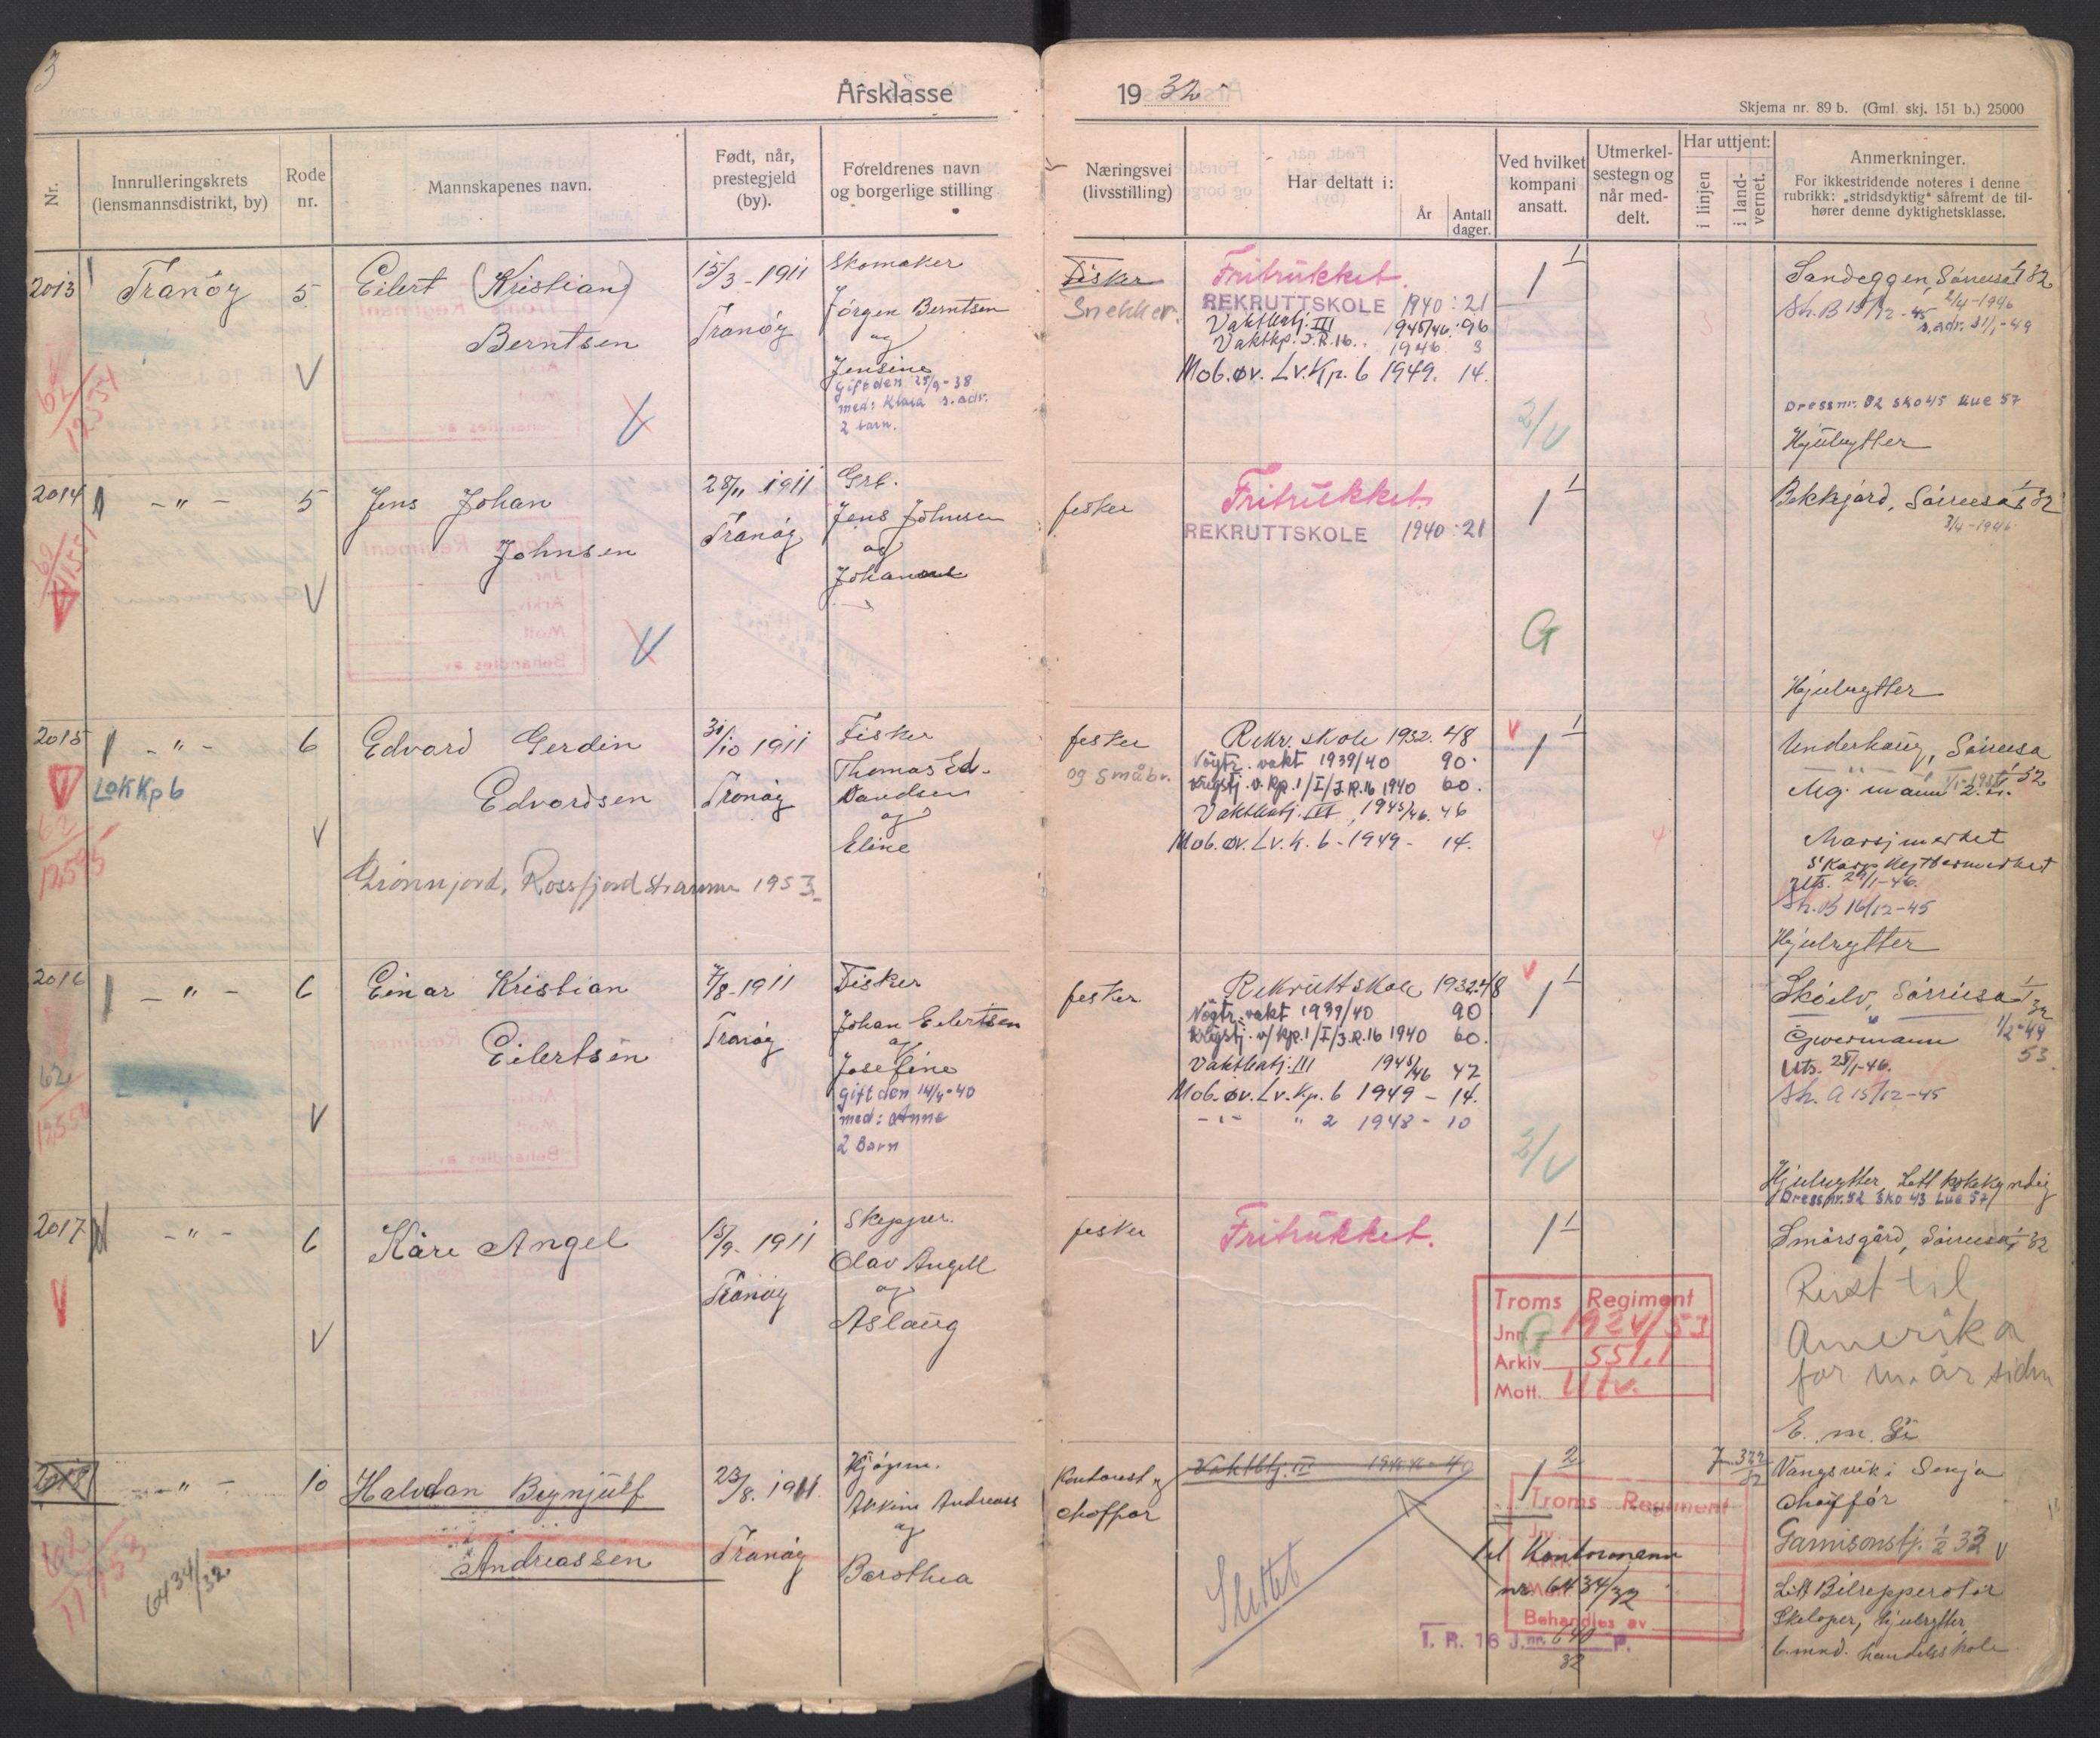 3
Årsklasse
19 32
Skjema nr. 89 b. (Gml. skj. 151 b.) 25000
Nr.
Innrulleringskrets
(lensmannsdistrikt, by)
Rode
nr.
Mannskapenes navn.
Født, når,
prestegjeld
(by).
Foreldrenes navn
og borgerlige stilling
Næringsvei
(livsstilling)
Har deltatt i:
År
Antall
dager.
Ved hvilket
kompani
ansatt.
Utmerkel-
sestegn og
når med-
delt.
Har uttjent:
i linjen
i land-
vernet.
Anmerkninger.
For ikkestridende noteres i denne
rubrikk: „stridsdyktig" såfremt de til-
hører denne dyktighetsklasse.
2013
Tranöy
5
V
Eilert (Kristian)
Berntsen
15/3 - 1911
Tranöy
Skomaker
Jörgen Berntsen
og
Jensine
gift den 25/9-38
med: Klara s. adr.
2 barn.
Fisker
Snekker.
Fritrukket.
REKRUTTSKOLE 1940 : 21
Vaktbatj. III 1945/46. 96
Vaktkp. I.R.16. 1946 3
Mob.øv. Lv.Kp. 6 1949. 14.
1 1
2/V
Sandeggen, Sörreisa 1/1 32
Sh. B 15/12-45 2/4-1946
s.adr. 31/1-49
Dressnr. 52 sko 45 Lue 57
Hjulrytter
2014
- " -
5
V
Jens Johan
Johnsen
28/11 1911
Tranöy
Grb.
Jens Johnsen
og
Johanne
fisker
Fritrukket.
REKRUTTSKOLE 1940 : 21
1 1
G
Bekkjord, Sörreisa 1/1 32
3/4-1946
Hjulrytter
2015
- " -
Lok Kp 6
6
V
62
12595
Edvard Gerdin
Edvardsen
31/10 1911
Tranöy
Fisker
Thomas Ed-
vardsen
og
Eline
Grönnjord, Rossfjord straumen 1953
fisker
og småbr.
Rekr. skole 1932. 48
Nöytr. vakt 1939/40 90.
Krigstj. v. Kp. 1/I/I.R. 16 1940 60.
Vaktbatj. III, 1945/46. 46
Mob. øv. Lv. K. 6 - 1949 - 14.
V
1 1
Underhaug, Sörreisa
Mg. mann 2. kl.
Marsjmerket
Skarpskyttermerket
Uts. 25/1-46.
Sh. B 16/12-45
Hjulrytter
2016
- " -
6
V
62
Einar Kristian
Eilertsen
7/8-1911
Tranöy
Fisker
Johan Eilertsen
og
Josefine
gift den 14/4-40
med: Anna
2 Barn
fisker
Rekruttskole 1932. 48
Nöytr. vakt 1939/40 90
Krigstj. v/ Kp. 1/I/I.R.16 1940 60.
Vaktbatj. III 1945/46 47
Mob. øv. Lv. Kp. 6 1949 - 14.
- " - " 2 1948 - 10
V
1 1
2/V
Sköelv, Sörreisa 1/1 32
1/2-49
Gevermann
53
Uts. 25/1-46.
Sh. A 15/12-45
Hjulrytter, Lett kokkyndig
Dressnr. 52 Sko 43 Lue 57
2017
- " -
6
V
V
Kåre Angel
15/9. 1911
Tranöy
Skipper.
Olav Angell
og
Aslaug
fisker
Fritrukket.
1 1
Troms Regiment
Jnr. 1924/53
Arkiv 551.1
Mott. Utv.
G
Smörsgård, Sörreisa 1/1 32
Reist til
Amerika
for m. år siden
E. m. Gr
2018
- " -
10
6434/32
Halvdan Brynjulf
Andreassen
23/8. 1911
Tranöy
Kjöpm.
Andreass
og
Barothea
Kontorist og
choffør
Vaktbtj. III
Slettet
1 2
Troms Regiment
Behandles av
til Kontormann
nr. 6434/32
I. R. 16 J.nr. 640 P.
32
Jnr. 322
32
Vangsvik i Senja
choffør
Garnisonstj. 1/2 32 V
Lett Bilreparatör
Skiløper, hjulrytter,
6. mnd. handelsskole